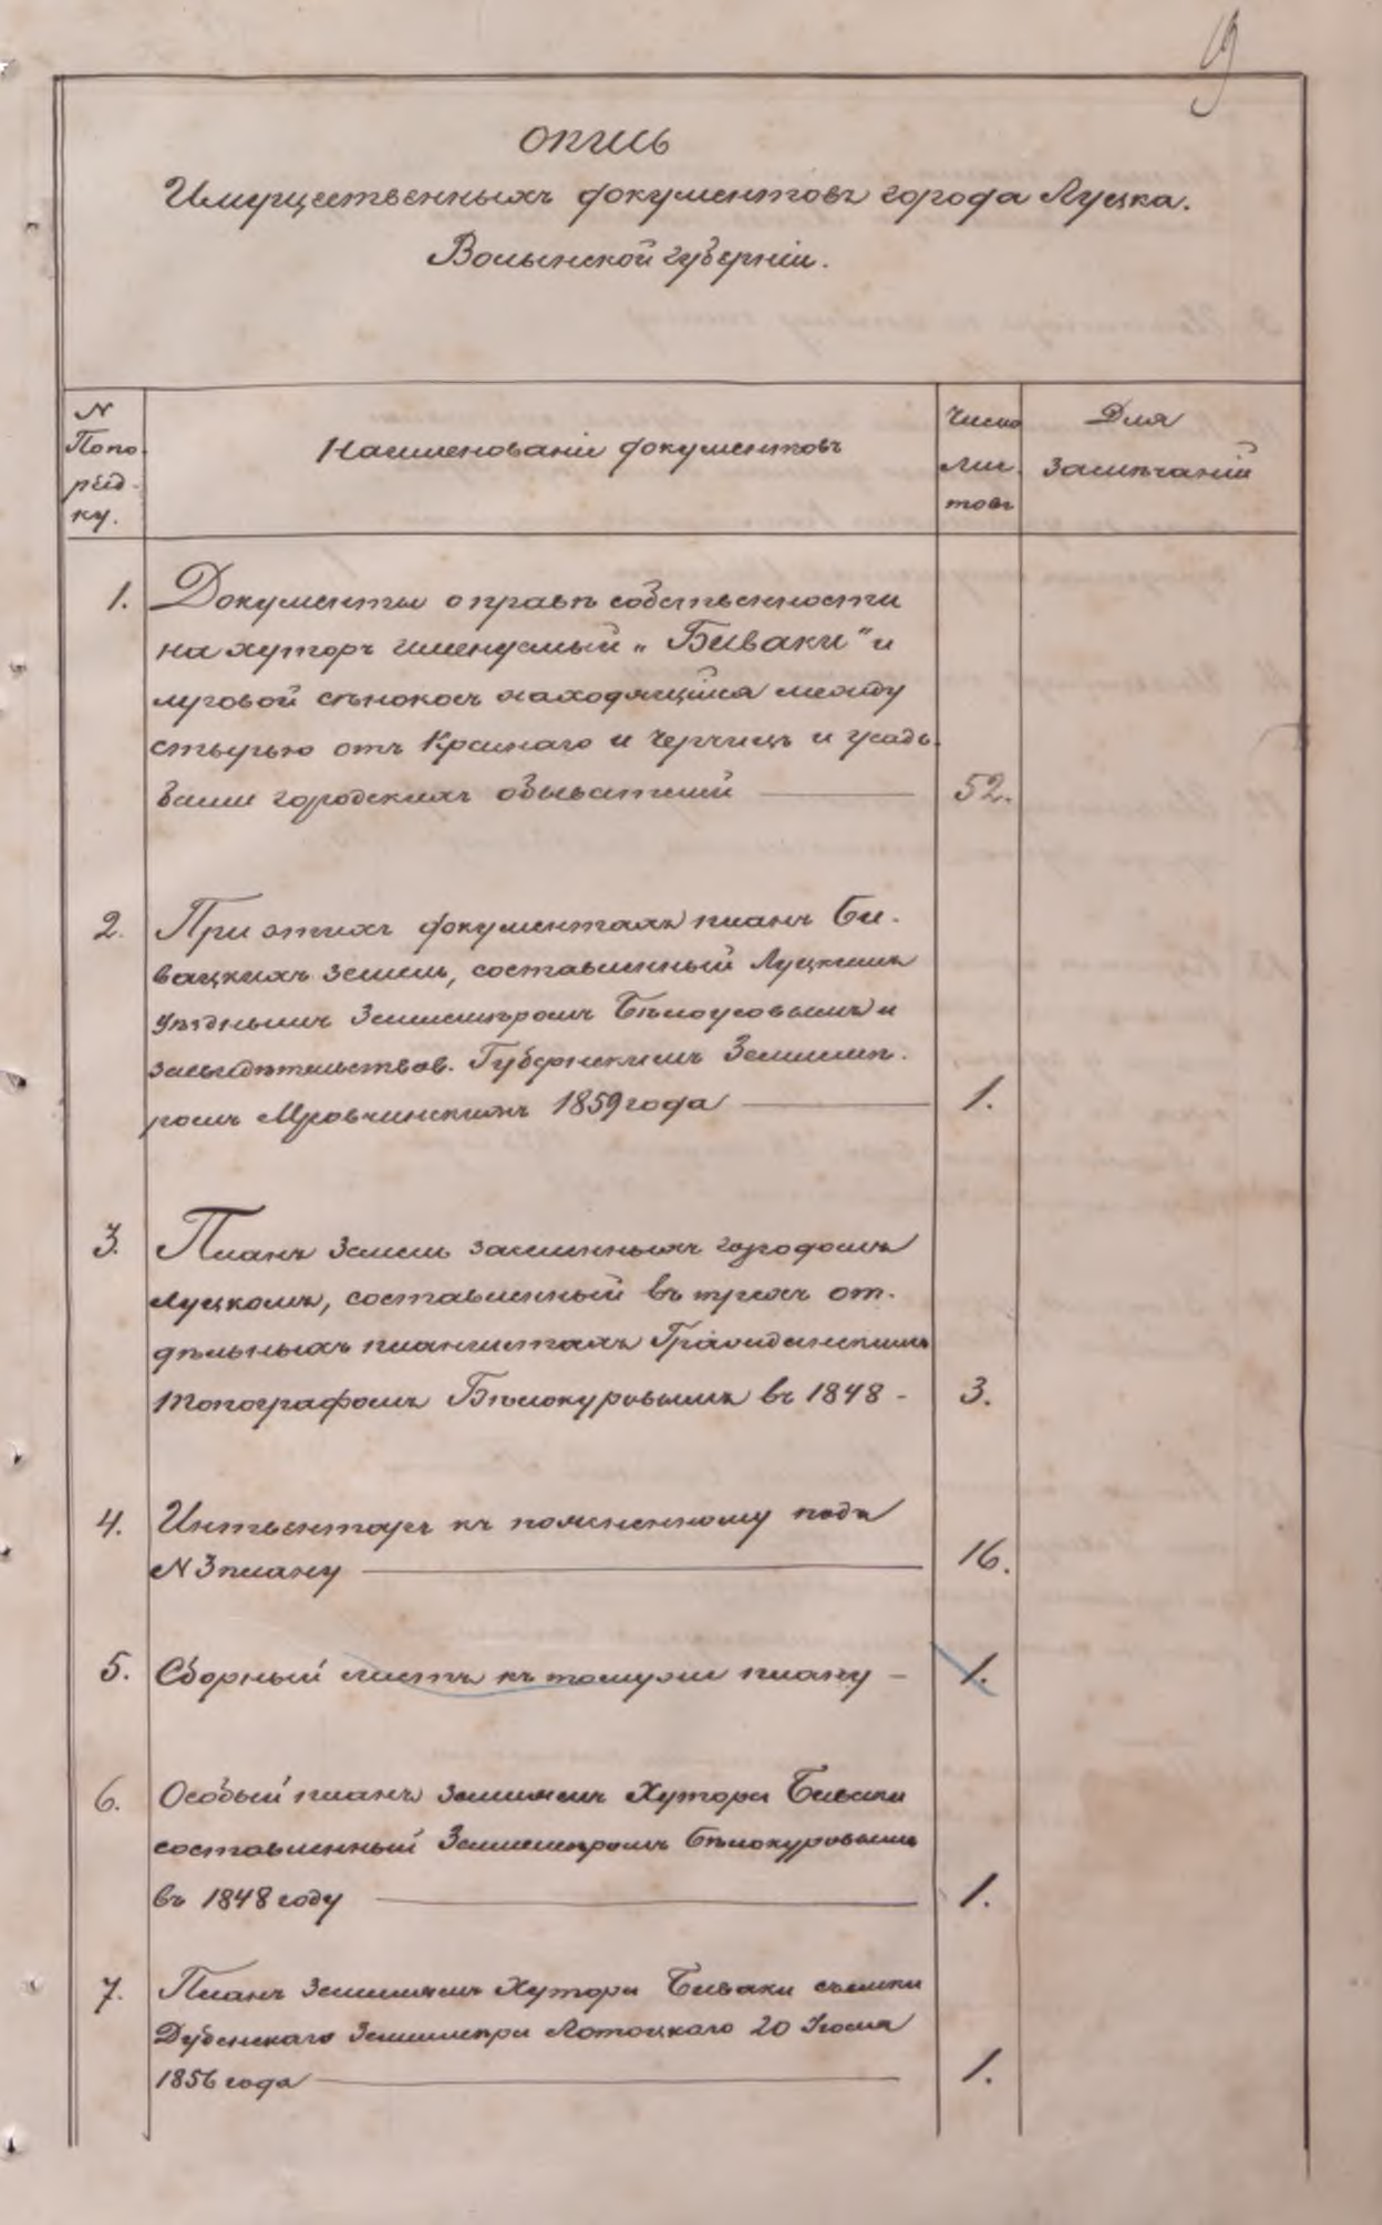 19
опись
Имущественныхъ документовъ города Луцка.
Волынской губерніи.
N
Попо
ряд-
ку.
Наименованіе документовъ
Число
лис-
товъ
Для
замѣчаній
1. Документы о правѣ собственности
на хуторъ именуемый „Биваки" и
луговой сѣнокосъ находящійся между
отъ Краснаго и Черчицъ и усадь-
бами городскихъ обывателей 52.
2. При этихъ документахъ планъ Би-
вацкихъ земель, составленный Луцкимъ
уѣзднымъ Землемѣромъ Бѣлоусовымъ и
засвидѣтельствов. Губернскимъ Землемѣ-
ромъ Мровчинскимъ 1859 года 1.
3. Планъ земель заселенныхъ городомъ
Луцкомъ, составленный въ трехъ от-
дѣльныхъ планшетахъ Гражданскимъ
топографомъ Бѣлокуровымъ въ 1848 - 3.
4. Инвентарь къ поясненному подъ
N 3 плану 16.
5. Сборный листъ къ тому же плану - 1.
6. Особый планъ землямъ Хутора Биваки
составленный Землемѣромъ Бѣлокуровымъ
въ 1848 году 1.
7. Планъ землямъ Хутора Биваки съемки
Дубенскаго Землемѣра Лотоцкаго 20 Іюля
1856 года 1.